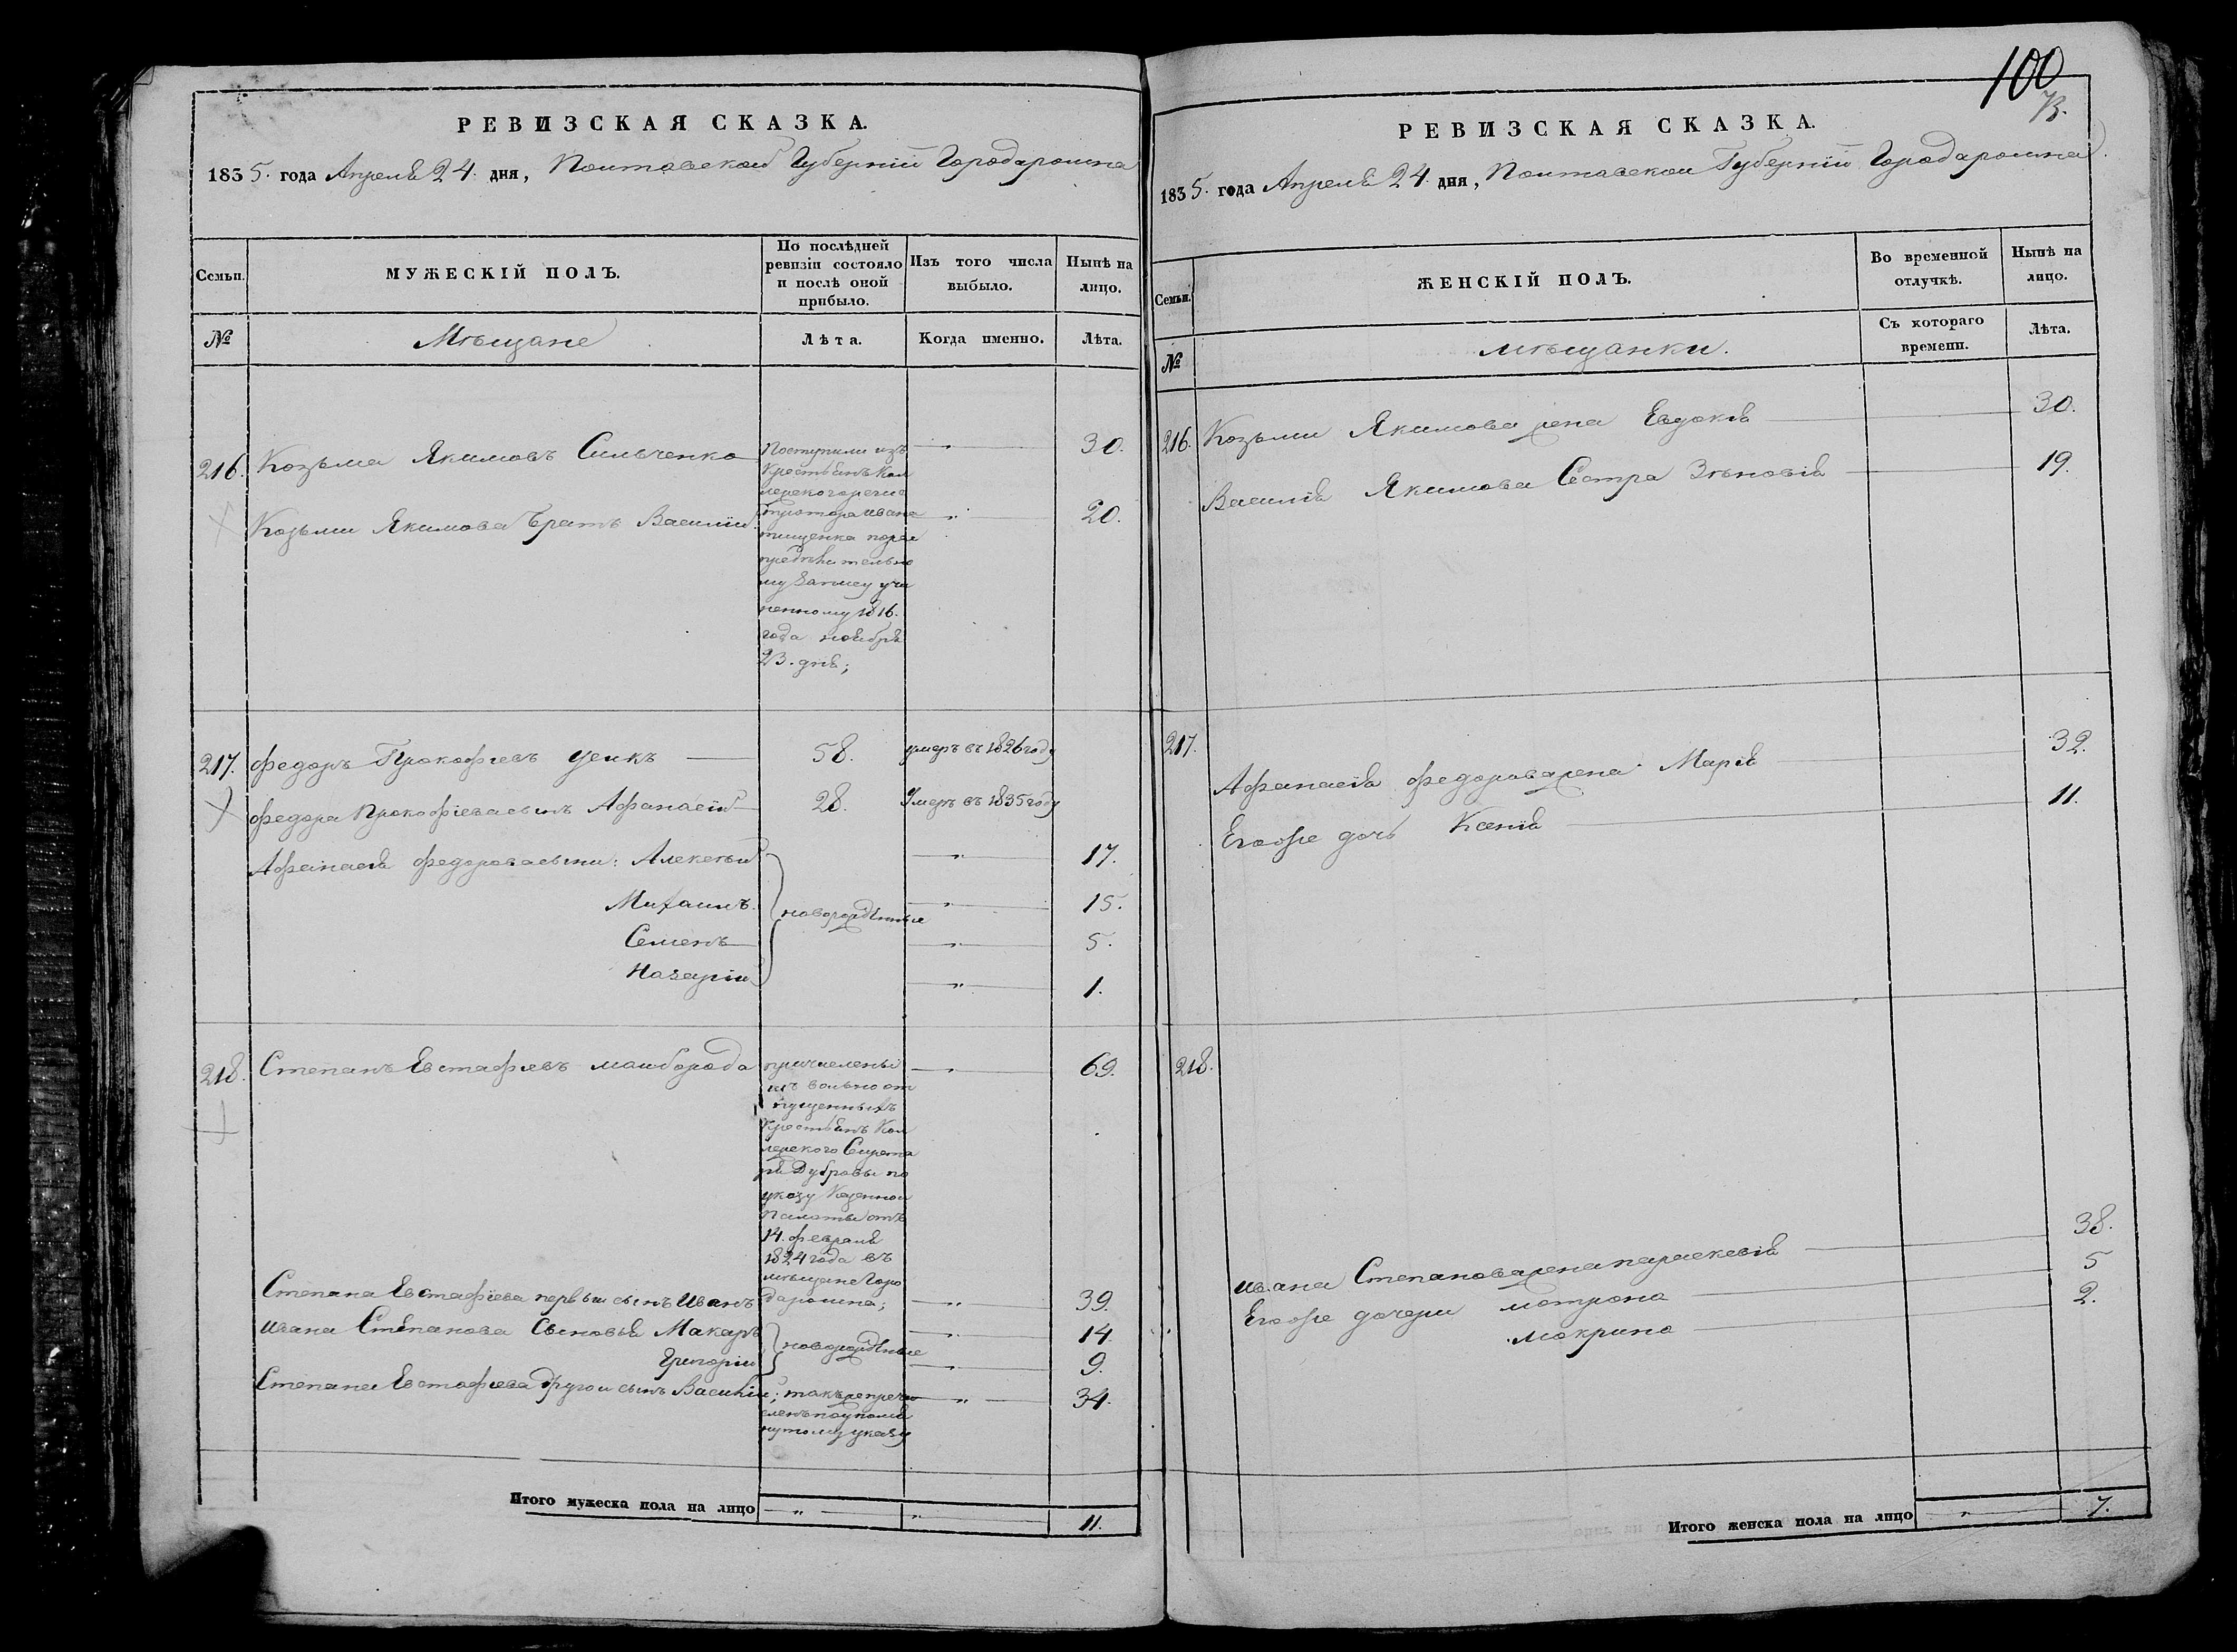 РЕВИЗСКАЯ СКАЗКА.
1835. года Апреля 24. дня, Полтавской Губернии Города ромна
Семьи.
МУЖЕСКІЙ ПОЛЪ.
По послѣдней ревизіи состояло и послѣ оной прибыло.
Изъ того числа выбыло.
Нынѣ на лицо.
№
Мѣщане
Лѣта.
Когда именно.
Лѣта.
216. Козьма Якимовъ Сильченко 30.
Поступили изъ
Крестьянъ Кол
лежского реги
стратора ивана
тищенка
му учи
ненному 1816.
года ноября
23. дня;
Козьмы Якимова братъ Василій 20.
217. Федоръ Прокофіевъ Цепкъ 58. умеръ въ 1826 году
Федора Прокофіева сынъ Афанасій 28. Умеръ въ 1835 году
Афанасія Федорова сыны: Алексѣй 17.
Михаилъ. 15.
новорожденные
Семенъ 5.
Назарій 1.
218. Степанъ Евстафіевъ майборода 69.
причислены
изъ вольноот
пущенныхъ
Крестьянъ Кол
лежского Секрета
ря Дубровы по
указу Казенной
Палаты отъ
14. февраля
1824 года въ
мѣщане Горо
да ромна;
Степана Евстафіева первый сынъ Иванъ 39.
ивана Степанова Сыновья Макаръ 14.
новорожденные
Григорій 9.
Степана Евстафіева другой сынъ Василій; такъже причи 34.
сленъ по упомя
нутому указу
Итого мужеска пола на лицо 11.
100
РЕВИЗСКАЯ СКАЗКА.
1835. года Апреля 24. дня, Полтавской Губерніи Города ромна.
Семьи.
ЖЕНСКІЙ ПОЛЪ.
Во временной отлучкѣ.
Нынѣ на лицо.
№
мѣщанки.
Съ котораго времени.
Лѣта.
216. Козьмы Якимова жена Евдокія 30.
Василія Якимова Сестра Зѣновія 19.
217.
Афанасія Федорова жена Марія 32.
Егоже дочь Ксенія 11.
218.
ивана Степанова жена параскевія 38.
Егоже дочери мотрона 5
макрина 2.
Итого женска пола на лицо 7.